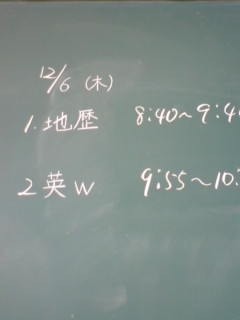 12/6 (木)
1. 地歴 8:40～9:4
2 英W 9:55～10: